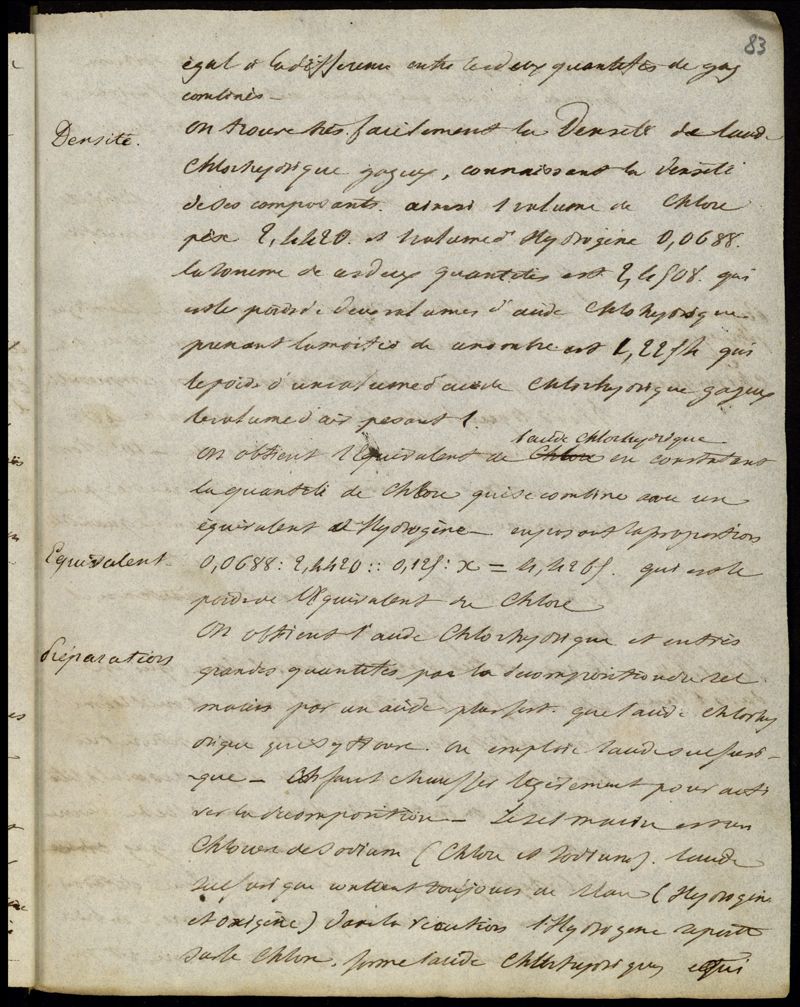 83
égal à la différence entre les deux quantités de gaz
combinés —
Densité.
On trouve très facilement la Densité de l'acide
Chlorhydrique gazeux, connaissant la densité
de ses composants. ainsi 1 volume de Chlore
pèse 2,4420. et 1 volume d'Hydrogène 0,0688.
la somme de ces deux quantités est 2,4508. qui
est le poids de deux volumes d'acide Chlorhydrique
prenant la moitié de ce nombre est 1,2254 qui
le poids d'un volume d'acide Chlorhydrique gazeux
le volume d'air pesant 1.
l'acide Chlorhydrique
On obtient l'Equivalent de Chlore en constatant
la quantité de Chlore qui se combine avec un
équivalent d'Hydrogène — en posant la proportion
Equivalent
0,0688 : 2,4420 :: 0,125 : x = 4,4265. qui est le
poids de l'Equivalent de Chlore
On obtient l'acide Chlorhydrique et en très
Préparation
grandes quantités par la décomposition du sel
marin par un acide plus fort que l'acide Chlorhy
drique qui s'y trouve. on emploie l'acide sulfuri-
-que — On faut chauffer légèrement pour acti
ver la décomposition — Le sel marin est un
Chlorure de Sodium (Chlore et Sodium). l'acide
sulfurique contient toujours de l'eau (Hydrogène
et oxigène) dans la réaction l'Hydrogène
sur le Chlore, forme l'acide Chlorhydrique qui